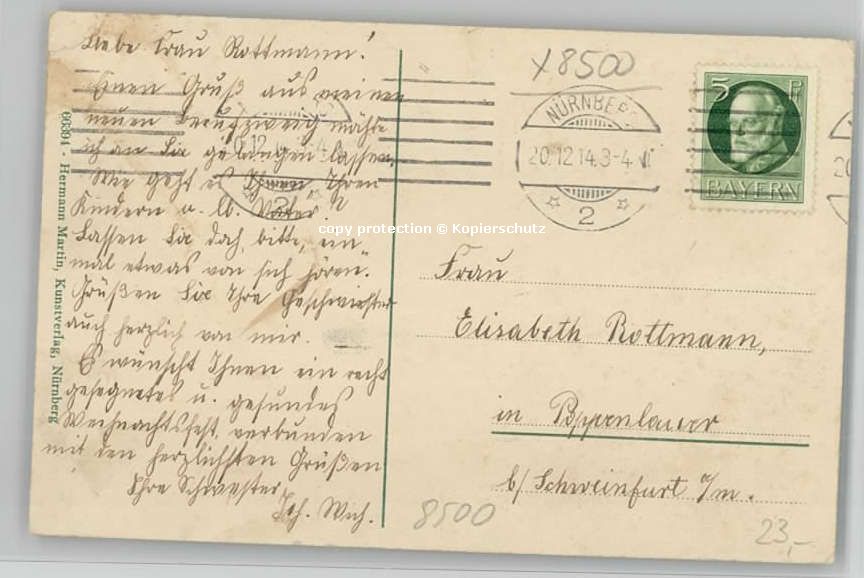 Liebe Frau Rottmann!
Einen Gruß aus meinen
neuen möchte
ich an Sie gelangen lassen.
Wie geht es Ihnen Ihren
Kindern u. lb. Vater?
Lassen Sie doch, bitte, ein
mal etwas von sich hören.
Grüßen Sie Ihre Geschwister
auch herzlich von mir.
Es wünscht Ihnen ein recht
gesegnetes u. gesundes
Weihnachtsfest, verbunden
mit den herzlichsten Grüßen
Ihre Schwester
Joh. Wich.
66394 - Hermann Martin, Kunstverlag, Nürnberg
x8500
NÜRNBERG
20.12.14.3-4
2
5 Pf
BAYERN
copy protection © Kopierschutz
Frau
Elisabeth Rottmann,
in Poppenlauer
b/ Schweinfurt a/m.
8500
23,-